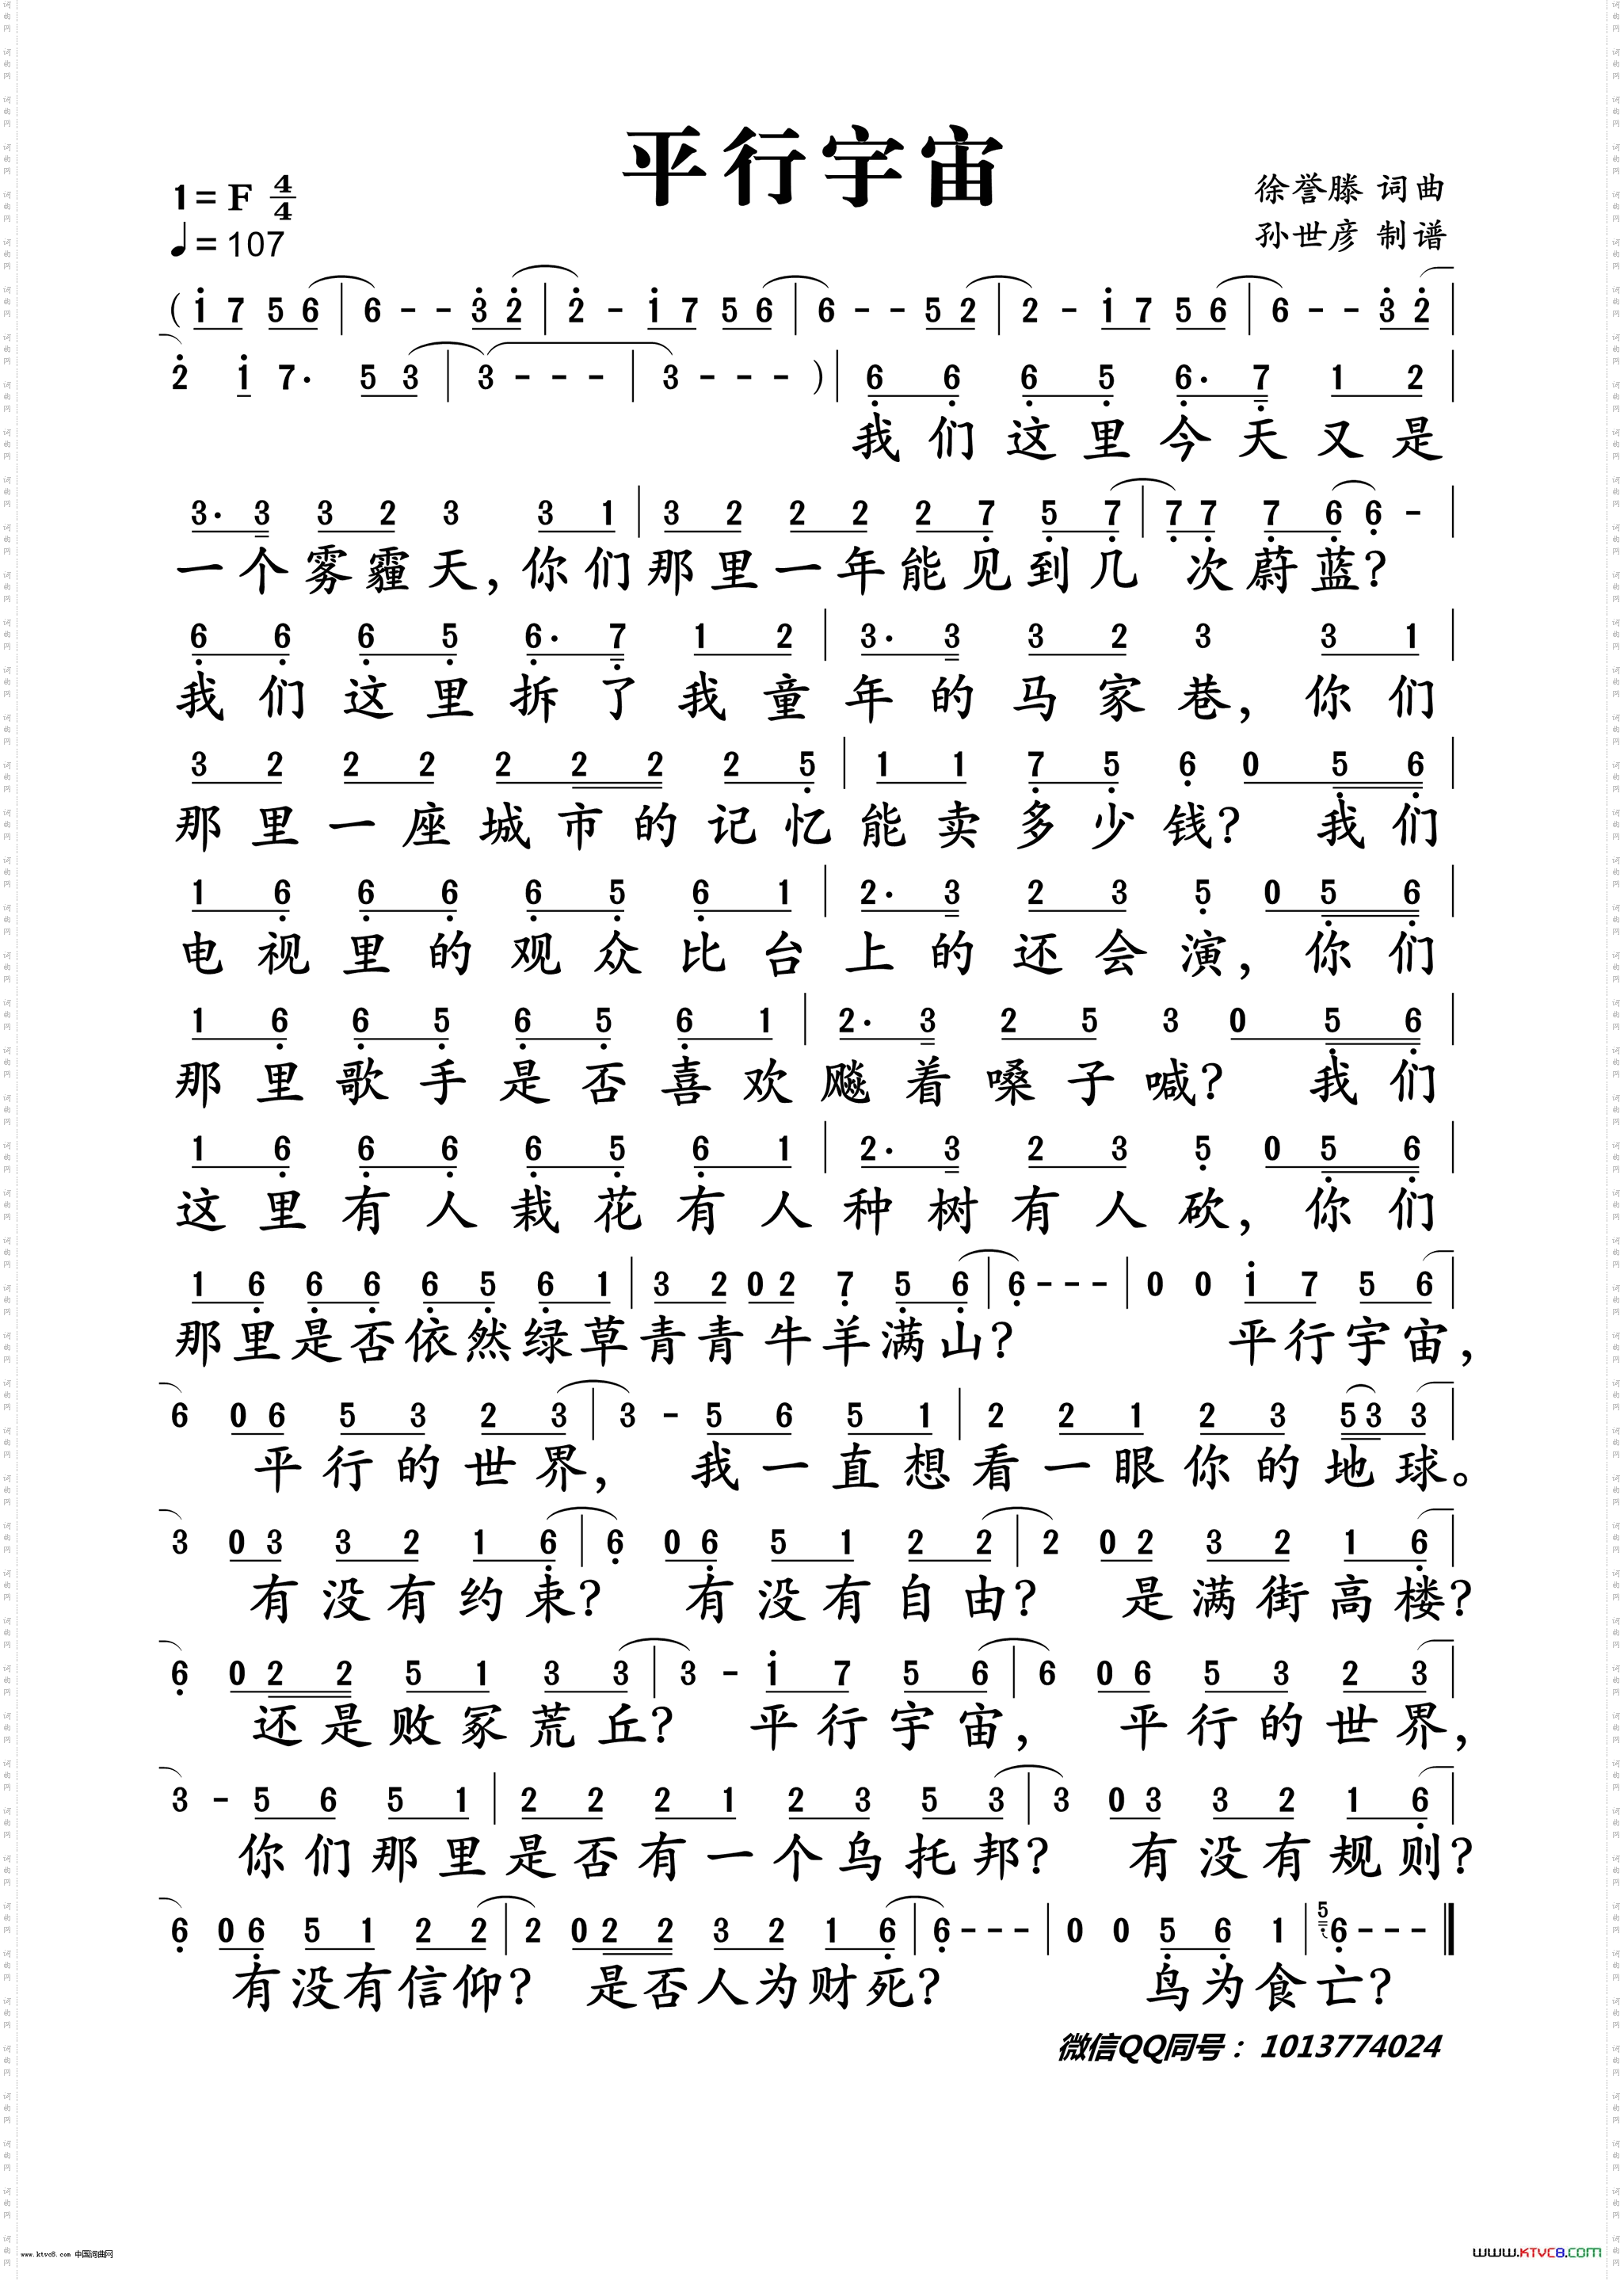 平行宇宙
1=F 4/4
♩=107
徐誉滕 词曲
孙世彦 制谱
(i 7 5 6 | 6 - - 3 2 | 2 - i 7 5 6 | 6 - - 5 2 | 2 - i 7 5 6 | 6 - - 3 2 |
2 1 7· 5 3 | 3 - - - | 3 - - - ) | 6 6 6 5 6· 7 1 2 |
我们这里今天又是
3· 3 3 2 3 3 1 | 3 2 2 2 2 7 5 7 | 7 7 7 6 6 - |
一个雾霾天,你们那里一年能见到几次蔚蓝?
6 6 6 5 6· 7 1 2 | 3· 3 3 2 3 3 1 |
我们这里拆了我童年的马家巷,你们
3 2 2 2 2 2 2 2 5 | 1 1 7 5 6 0 5 6 |
那里一座城市的记忆能卖多少钱? 我们
1 6 6 6 6 5 6 1 | 2· 3 2 3 5 0 5 6 |
电视里的观众比台上的还会演,你们
1 6 6 5 6 5 6 1 | 2· 3 2 5 3 0 5 6 |
那里歌手是否喜欢飚着嗓子喊? 我们
1 6 6 6 6 5 6 1 | 2· 3 2 3 5 0 5 6 |
这里有人栽花有人种树有人砍,你们
1 6 6 6 6 5 6 1 | 3 2 0 2 7 5 6 | 6 - - - | 0 0 i 7 5 6 |
那里是否依然绿草青青牛羊满山? 平行宇宙,
6 0 6 5 3 2 3 | 3 - 5 6 5 1 | 2 2 1 2 3 5 3 3 |
平行的世界, 我一直想看一眼你的地球。
3 0 3 3 2 1 6 | 6 0 6 5 1 2 2 | 2 0 2 3 2 1 6 |
有没有约束? 有没有自由? 是满街高楼?
6 0 2 2 5 1 3 3 | 3 - i 7 5 6 | 6 0 6 5 3 2 3 |
还是败冢荒丘? 平行宇宙, 平行的世界,
3 - 5 6 5 1 | 2 2 2 1 2 3 5 3 | 3 0 3 3 2 1 6 |
你们那里是否有一个乌托邦? 有没有规则?
6 0 6 5 1 2 2 | 2 0 2 2 3 2 1 6 | 6 - - - | 0 0 5 6 1 | 5 6 - - - ‖
有没有信仰? 是否人为财死? 鸟为食亡?
微信QQ同号：1013774024
www.ktvc8.com 中国词曲网
WWW.KTVC8.COM